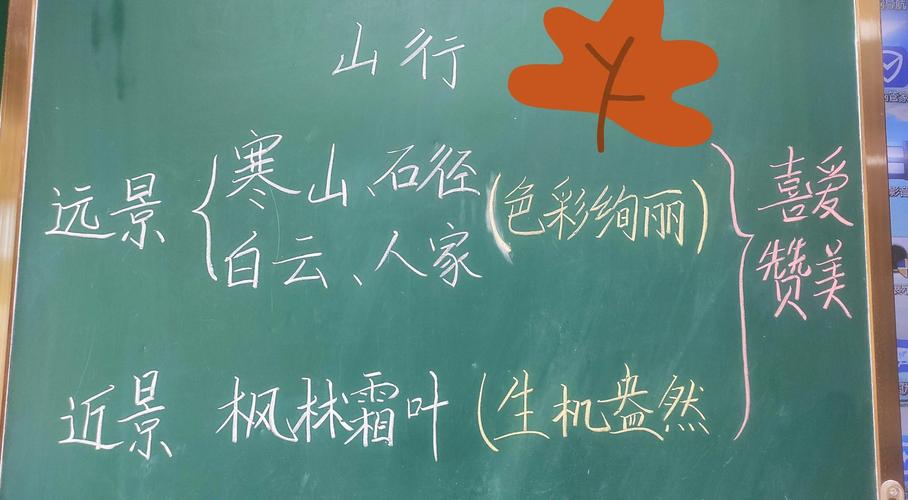 山行
远景 { 寒山、石径
白云、人家 (色彩绚丽)
近景 枫林霜叶 (生机盎然
} 喜爱
赞美